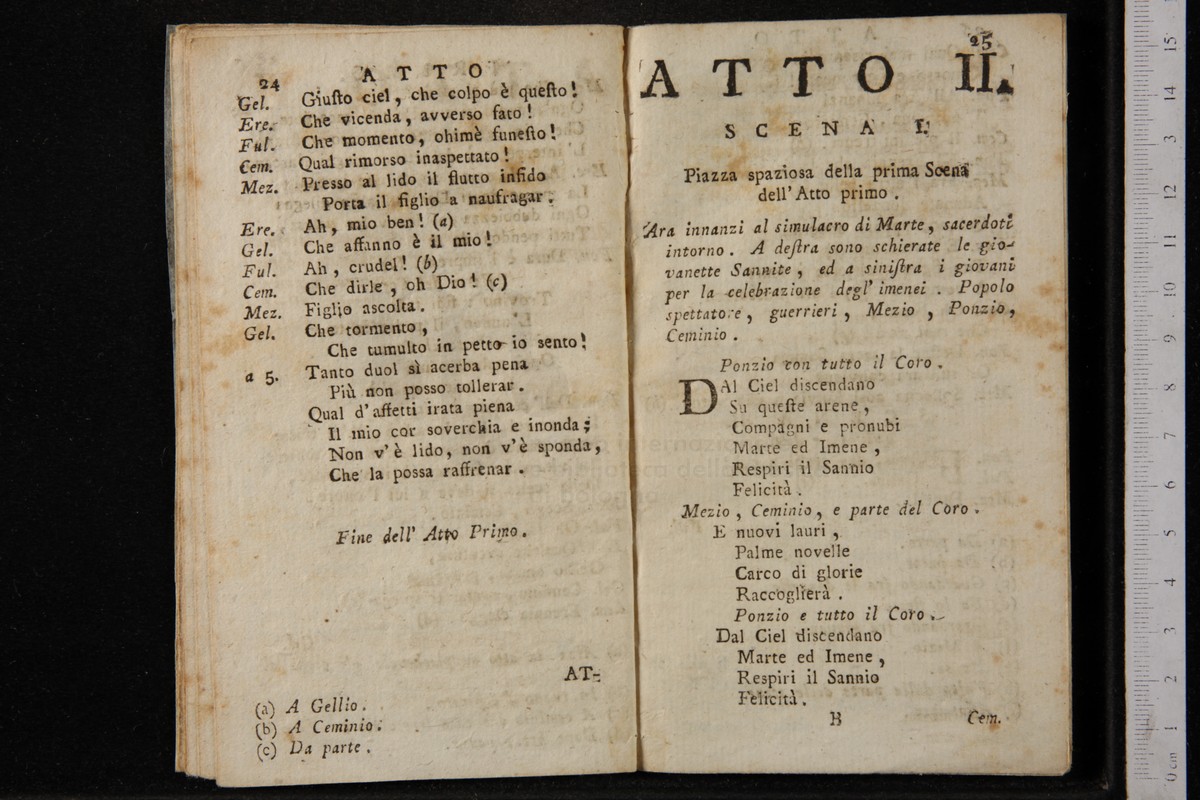 24
ATTO
Gel. Giuſto ciel, che colpo è queſto!
Ere. Che vicenda, avverso fato!
Ful. Che momento, ohimè funeſto!
Cem. Qual rimorso inaspettato!
Mez. Presso al lido il flutto infido
Porta il figlio a naufragar.
Ere. Ah, mio ben! (a)
Gel. Che affanno è il mio!
Ful. Ah, crudel! (b)
Cem. Che dirle, oh Dio! (c)
Mez. Figlio ascolta.
Gel. Che tormento,
Che tumulto in petto io sento!
a 5. Tanto duol sì acerba pena
Più non posso tollerar.
Qual d'affetti irata piena
Il mio cor soverchia e inonda;
Non v'è lido, non v'è sponda,
Che la possa raffrenar.
Fine dell' Atto Primo.
AT-
(a) A Gellio.
(b) A Ceminio.
(c) Da parte.
25
ATTO II.
SCENA I.
Piazza spaziosa della prima Scena
dell'Atto primo.
Ara innanzi al simulacro di Marte, sacerdoti
intorno. A deſtra sono schierate le gio-
vanette Sannite, ed a siniſtra i giovani
per la celebrazione degl' imenei. Popolo
spettatore, guerrieri, Mezio, Ponzio,
Ceminio.
Ponzio con tutto il Coro.
DAl Ciel discendano
Su queſte arene,
Compagni e pronubi
Marte ed Imene,
Respiri il Sannio
Felicità.
Mezio, Ceminio, e parte del Coro.
E nuovi lauri,
Palme novelle
Carco di glorie
Raccoglierà.
Ponzio e tutto il Coro.
Dal Ciel discendano
Marte ed Imene,
Respiri il Sannio
Felicità.
B
Cem.
0 cm 1 2 3 4 5 6 7 8 9 10 11 12 13 14 15